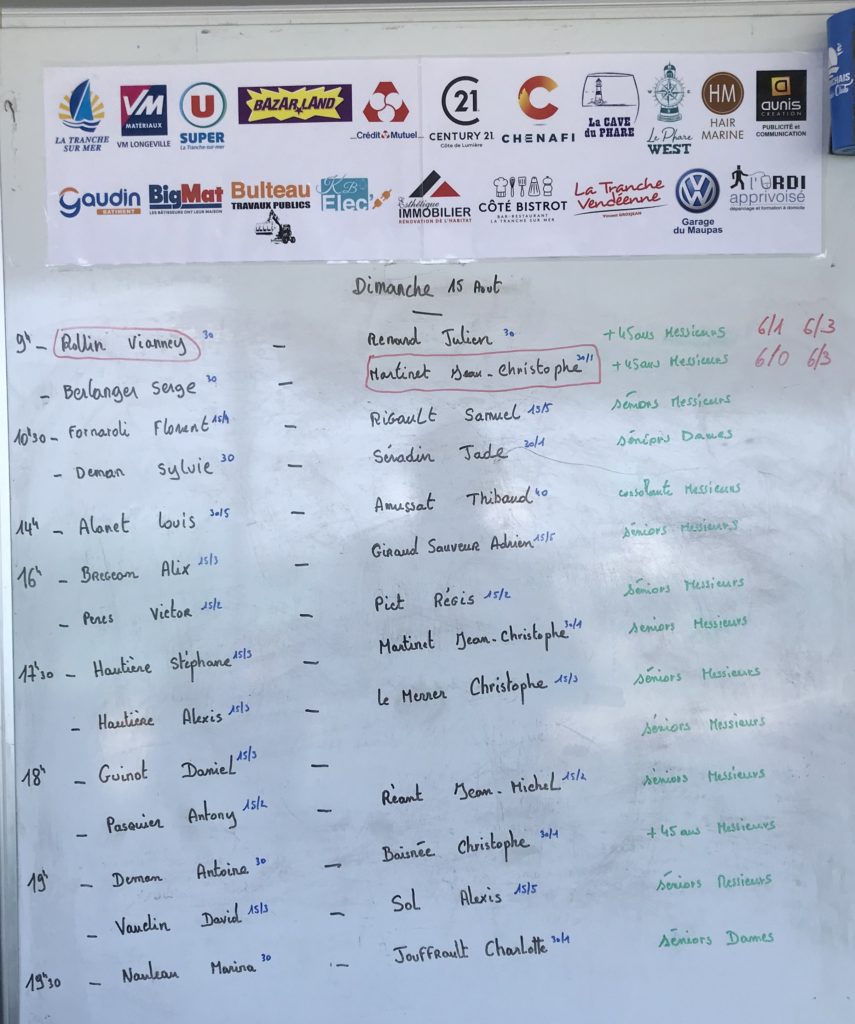 LA TRANCHE SUR MER
VM MATÉRIAUX VM LONGEVILLE
U SUPER La Tranche-sur-mer
BAZARLAND
Crédit Mutuel
C21 CENTURY 21 Côte de Lumière
CHENAFI
LA CAVE DU PHARE
Le Phare WEST
HM HAIR MARINE
aunis CREATION PUBLICITÉ et COMMUNICATION
Gaudin BATIMENT
BigMat LES BÂTISSEURS ONT LEUR MAISON
Bulteau TRAVAUX PUBLICS
KB- Elec'
Esthétique IMMOBILIER RÉNOVATION DE L'HABITAT
CÔTÉ BISTROT BAR-RESTAURANT LA TRANCHE SUR MER
La Tranche Vendéenne Vincent GROSJEAN
Garage du Maupas
l'ORDI apprivoisé dépannage et formation à domicile
Dimanche 15 Aout
9h - Rollin Vianney 30 - Renard Julien 30 +45ans Messieurs 6/1 6/3
- Berlanger Serge 30 - Martinet Jean-Christophe 30/1 +45ans Messieurs 6/0 6/3
10h30 - Fornaroli Florent 15/4 - Rigault Samuel 15/5 séniors Messieurs
- Deman Sylvie 30 - Séradin Jade 30/1 séniors Dames
14h - Alanet Louis 30/5 - Amussat Thibaud 40 consolante Messieurs
16h - Bregeom Alix 15/3 - Giraud Sauveur Adrien 15/5 séniors Messieurs
- Peres Victor 15/2 - Piet Régis 15/2 séniors Messieurs
17h30 - Hautière Stéphane 15/3 - Martinet Jean-Christophe 30/1 seniors Messieurs
- Hautière Alexis 15/3 - Le Merrer Christophe 15/3 séniors Messieurs
18h - Guinot Daniel 15/3 - séniors Messieurs
- Pasquier Antony 15/2 - Réant Jean-Michel 15/2 séniors Messieurs
19h - Deman Antoine 30 - Boisnée Christophe 30/1 +45ans Messieurs
- Vaudin David 15/3 - Sol Alexis 15/5 séniors Messieurs
19h30 - Nauleau Marina 30 - Jouffrault Charlotte 30/1 séniors Dames